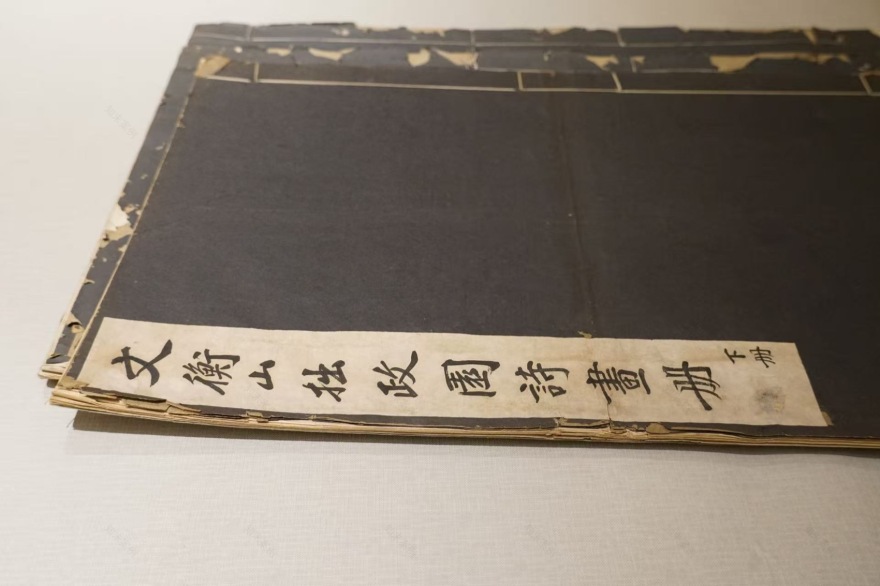 文衡山拙政園詩畫册
下册